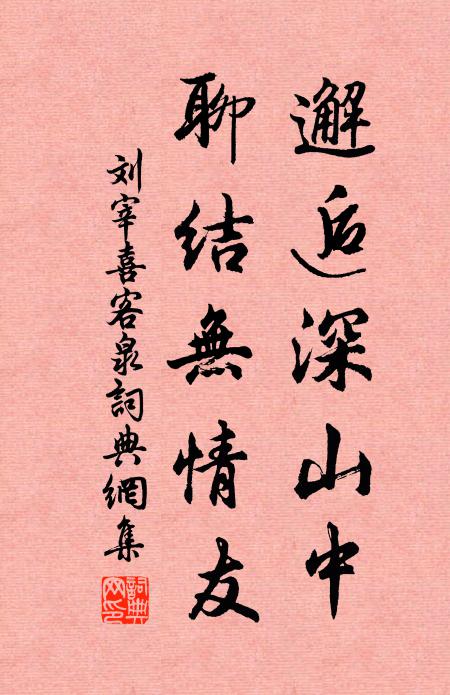 邂逅深山中
聊結無情友
刘宰喜客泉詞典網集
詞典网印